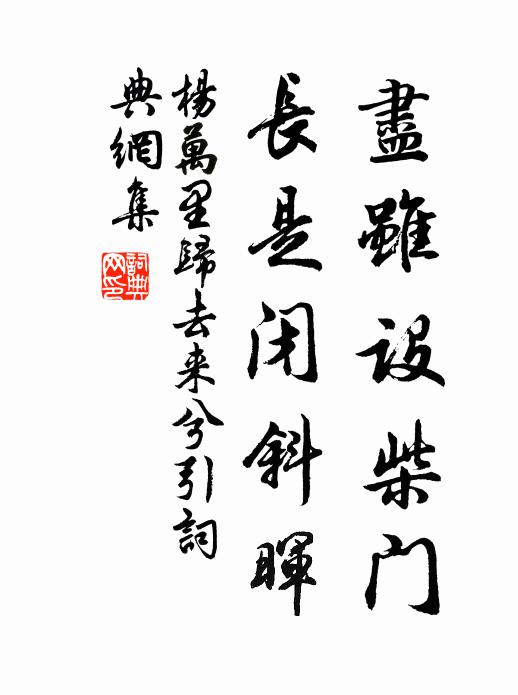 盡雖設柴門
長是閉斜暉
楊萬里歸去来兮引詞
典網集
詞典网印